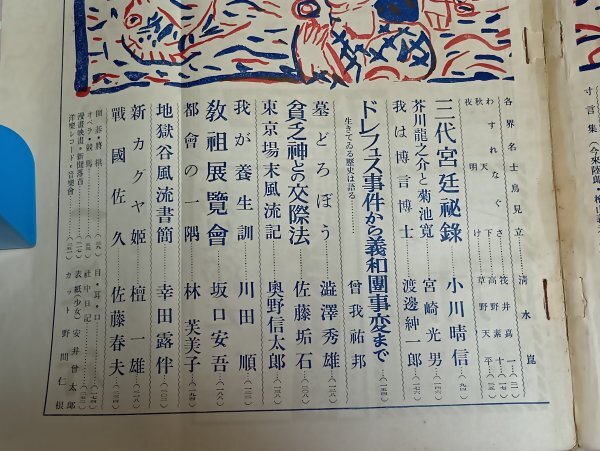 各界名士鳥見立 清水崑
わすれなぐさ 筏井嘉一
秋天下 高野素十
夜明け 草野天平
三代宮廷祕錄 小川晴信
芥川龍之介と菊池寛 宮崎光男
我は博言博士 渡邊紳一郎
ドレフュス事件から義和團事変まで 曾我祐邦
生きてゐる歴史は語る
墓どろぼう 澁澤秀雄
貧乏神との交際法 佐藤垢石
東京場末風流記 奥野信太郎
我が養生訓 川田順
敎祖展覽會 坂口安吾
都會の一隅 林芙美子
地獄谷風流書簡 幸田露伴
新カグヤ姫 檀一雄
戰國佐久 佐藤春夫
圍碁・將棋
オペラ・競馬
漫畫映畫・新聞落首
洋樂レコード・音樂會
目・耳・口
社中日記
表紙(少女) 安井曾太郎
カット 野間仁根
寸言集(今來陸郎